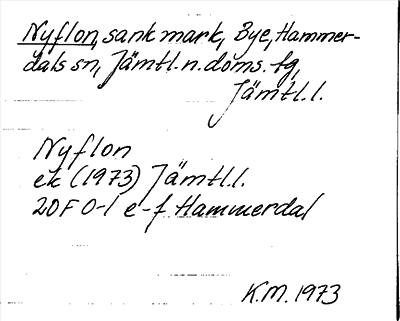 Nyflon, sank mark, Bye, Hammer-
dals sn, Jämtl. n. doms. fg,
Jämtl. l.
Nyflon
ek (1973) Jämtl. l.
20F 0-1 e-f Hammerdal
K.M. 1973